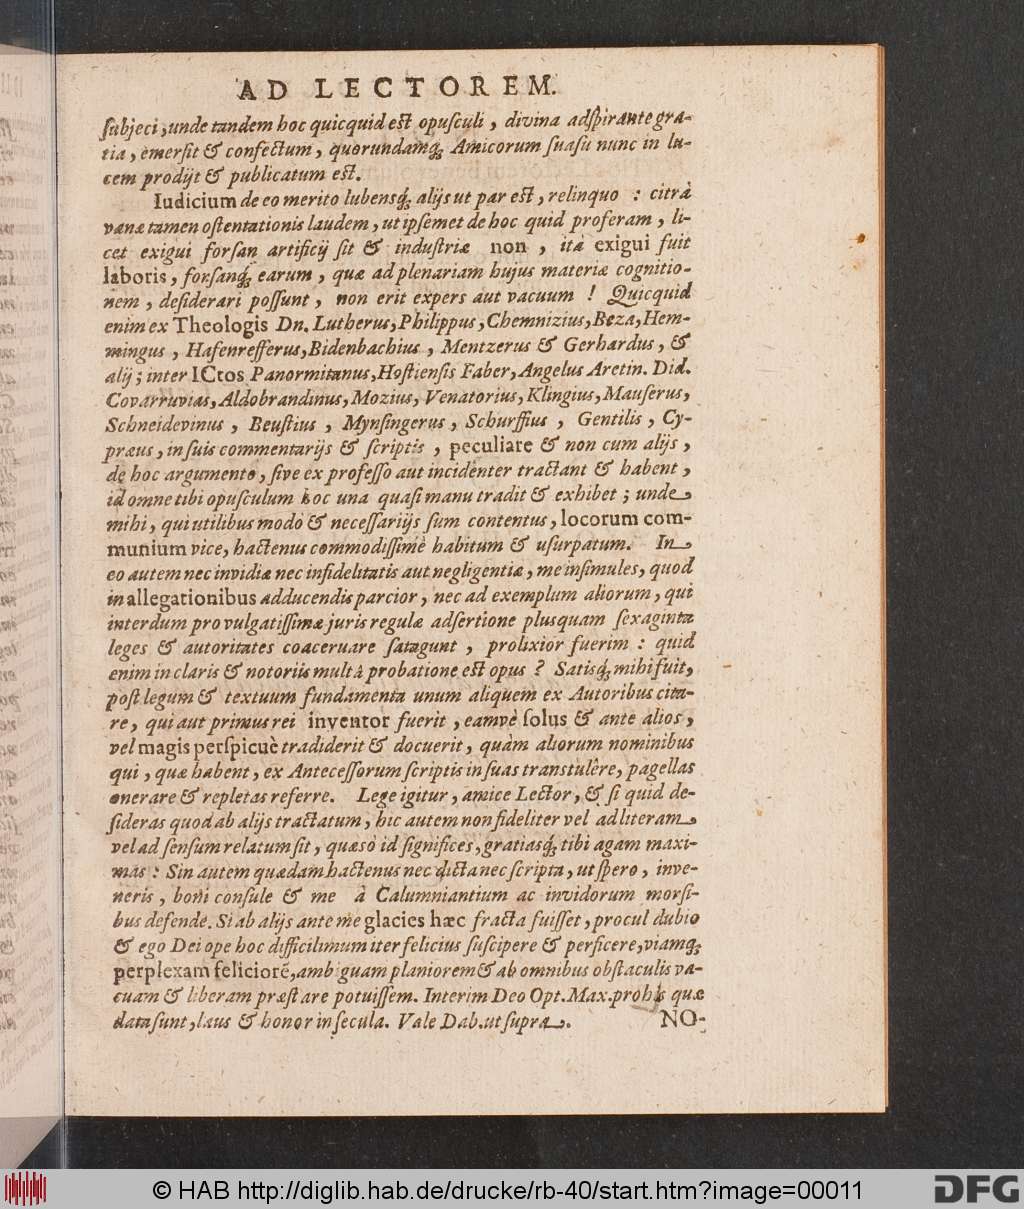 AD LECTOREM.
ſubjeci, unde tandem hoc quicquid est opuſculi, divina adſpirante gra-
tia, emerſit & confectum, quorundamq; Amicorum ſuaſu nunc in lu-
cem prodijt & publicatum est.
Iudicium de eo merito lubensq; alijs ut par est, relinquo : citrà
vanæ tamen oſtentationis laudem, ut ipſemet de hoc quid proferam, li-
cet exigui forſan artificij ſit & induſtriæ non, ità exigui fuit
laboris, forſanq; earum, quæ ad plenariam hujus materiæ cognitio-
nem, deſiderari poſſunt, non erit expers aut vacuum ! Quicquid
enim ex Theologis Dn. Lutherus, Philippus, Chemnizius, Beza, Hem-
mingus, Hafenrefferus, Bidenbachius, Mentzerus & Gerhardus, &
alij ; inter ICtos Panormitanus, Hoſtienſis Faber, Angelus Aretin. Did.
Covarruvias, Aldobrandinus, Mozius, Venatorius, Klingius, Mauſerus,
Schneidevinus, Beuſtius, Mynſingerus, Schurffius, Gentilis, Cy-
præus, in ſuis commentarijs & ſcriptis, peculiare & non cum alijs,
de hoc argumento, ſive ex profeſſo aut incidenter tractant & habent,
id omne tibi opuſculum hoc una quaſi manu tradit & exhibet ; unde
mihi, qui utilibus modò & neceſſarijs ſum contentus, locorum com-
munium vice, hactenus commodiſſimè habitum & uſurpatum. In
eo autem nec invidiæ nec infidelitatis aut negligentiæ, me inſimules, quod
in allegationibus adducendis parcior, nec ad exemplum aliorum, qui
interdum pro vulgatiſſimæ juris regulæ adſertione plusquam ſexaginta
leges & autoritates coacervare ſatagunt, prolixior fuerim : quid
enim in claris & notoriis multâ probatione est opus ? Satisq; mihi fuit,
poſt legum & textuum fundamenta unum aliquem ex Autoribus cita-
re, qui aut primus rei inventor fuerit, eamvè ſolus & ante alios,
vel magis perſpicuè tradiderit & docuerit, quàm aliorum nominibus
qui, quæ habent, ex Anteceſſorum ſcriptis in ſuas transtulêre, pagellas
onerare & repletas referre. Lege igitur, amice Lector, & ſi quid de-
ſideras quod ab alijs tractatum, hic autem non fideliter vel ad literam
vel ad ſenſum relatum ſit, quæsò id ſignifices, gratiasq; tibi agam maxi-
mas : Sin autem quædam hactenus nec dicta nec ſcripta, ut ſpero, inve-
neris, boni conſule & me à Calumniantium ac invidorum morſi-
bus defende. Si ab alijs ante me glacies hæc fracta fuiſſet, procul dubio
& ego Dei ope hoc difficilimum iter felicius ſuſcipere & perficere, viamq;
perplexam feliciorē, ambiguam planiorem & ab omnibus obſtaculis va-
cuam & liberam præſtare potuiſſem. Interim Deo Opt. Max. pro his quæ
data ſunt, laus & honor in ſecula. Vale Dab. ut ſupra.
NO-
© HAB http://diglib.hab.de/drucke/rb-40/start.htm?image=00011
DFG